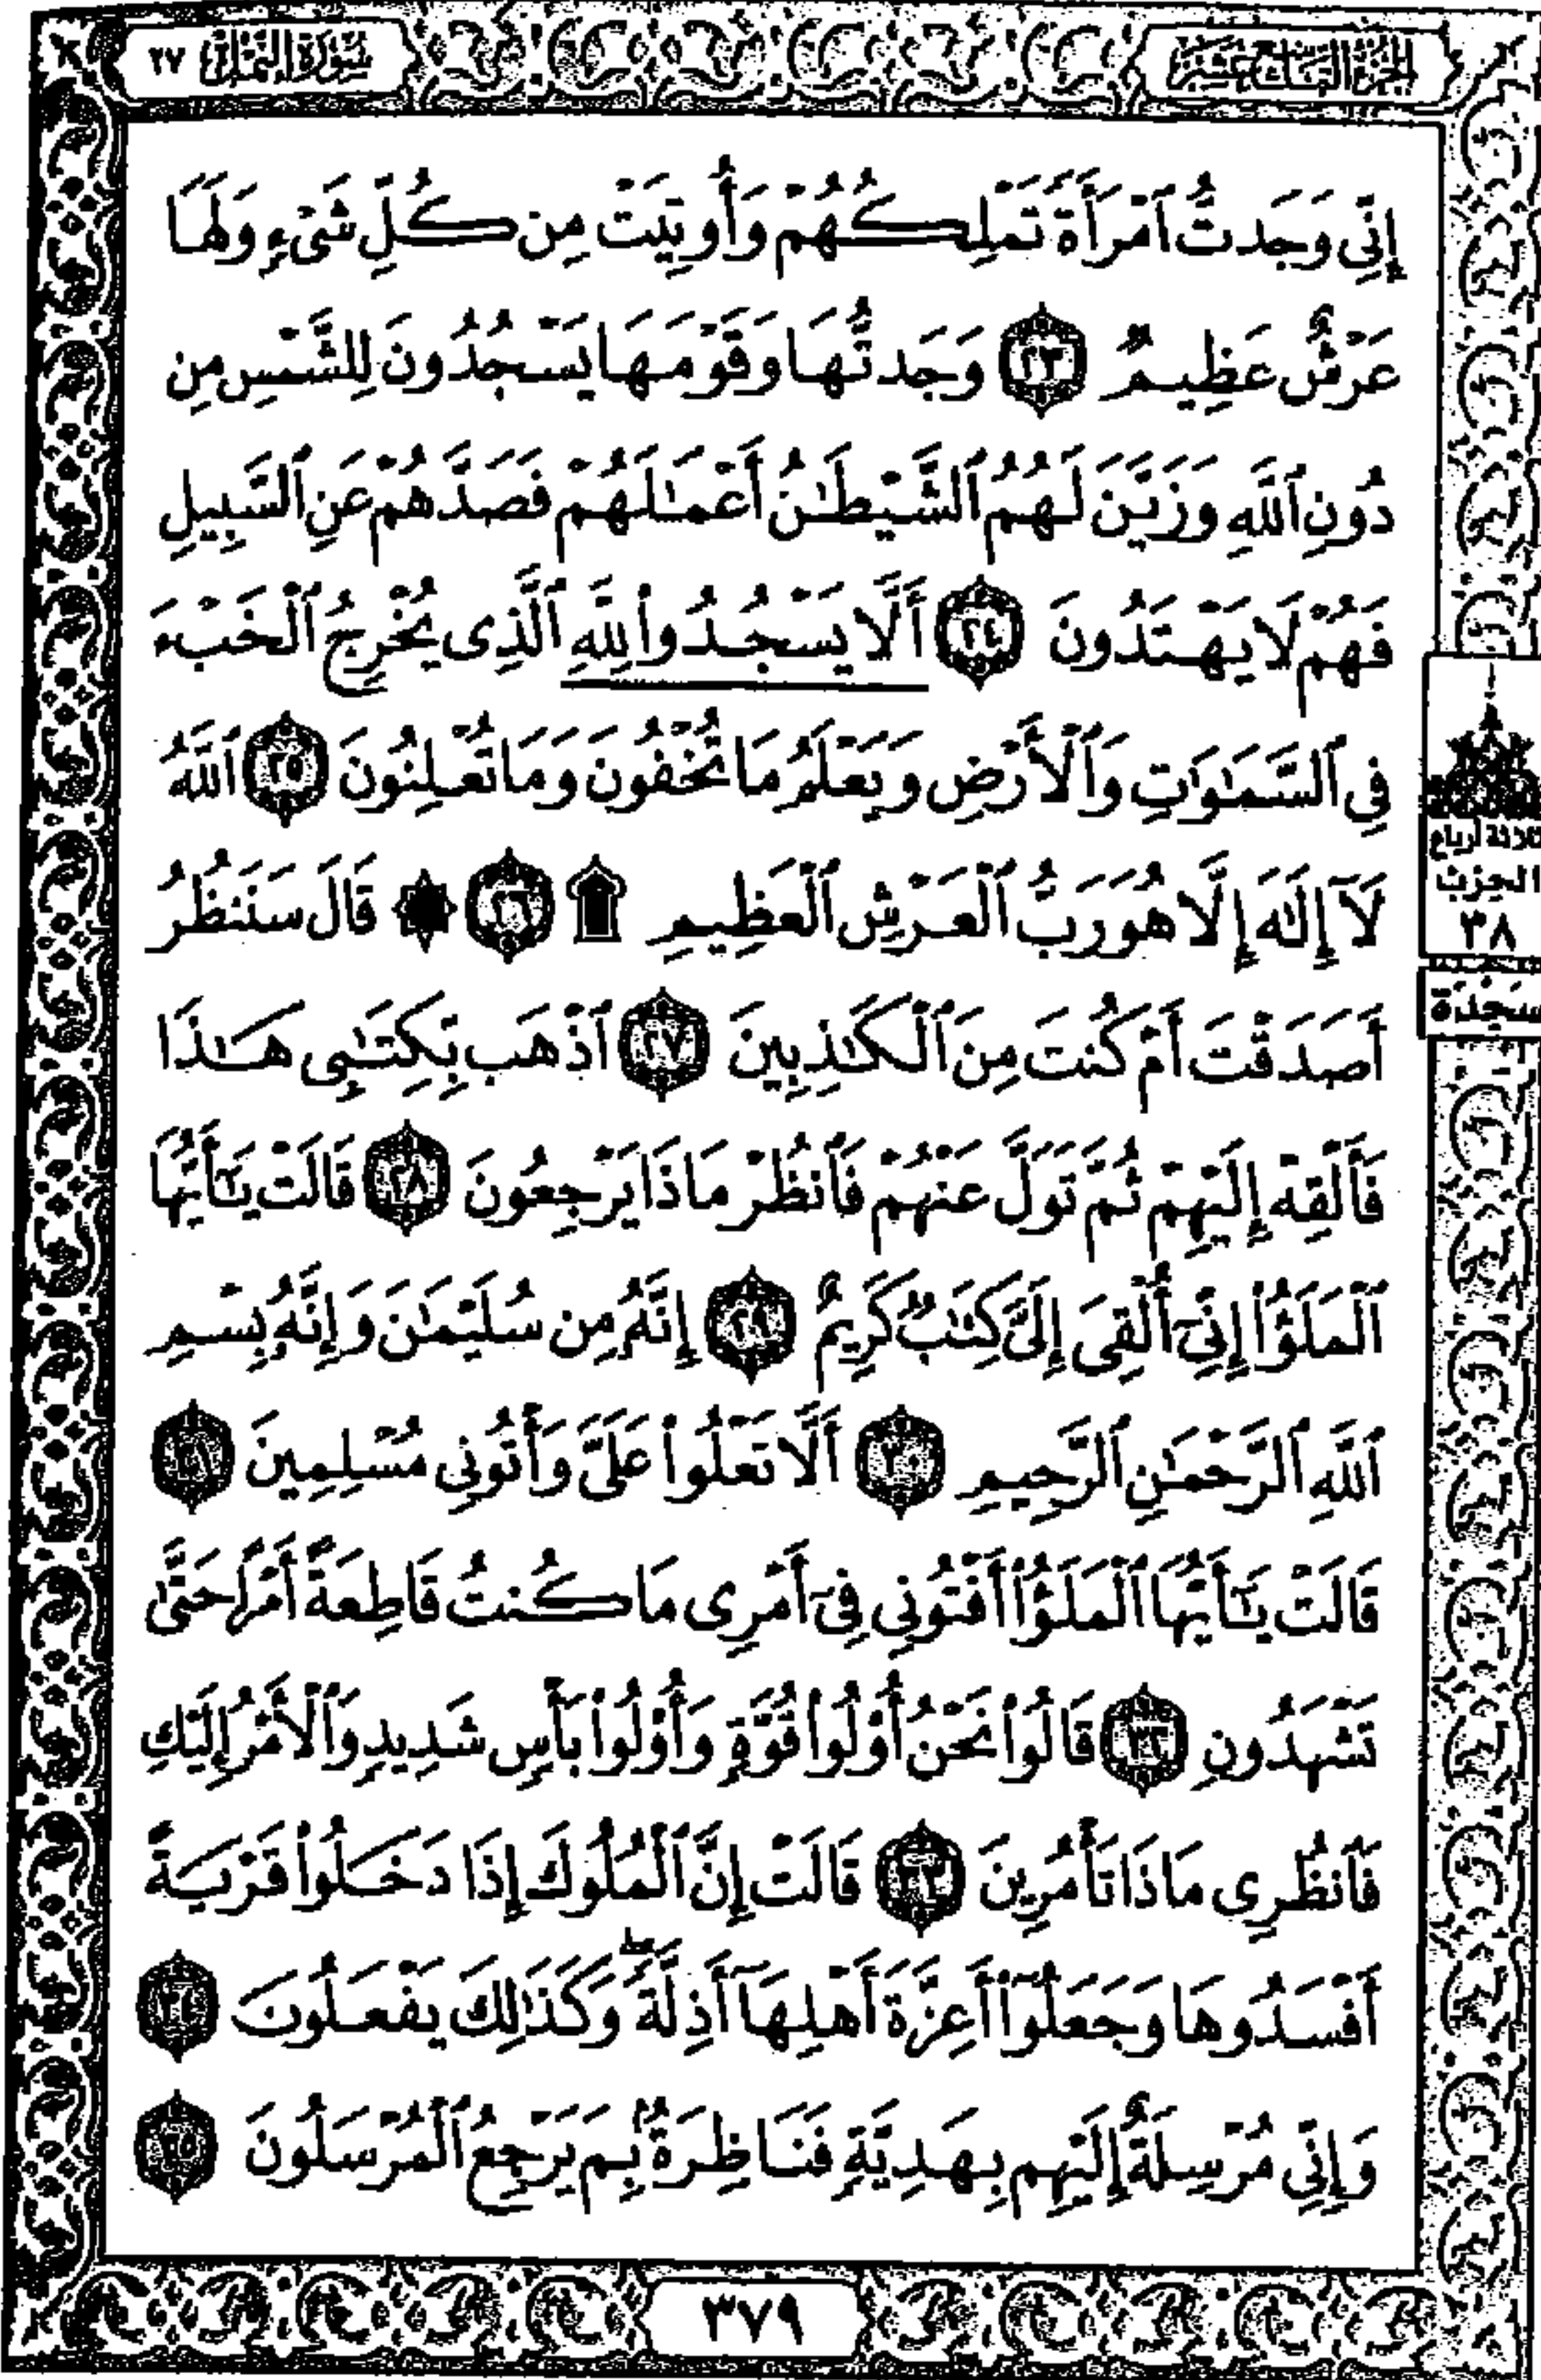 الجزء التاسع عشر
سورة النمل ٢٧
إِنِّي وَجَدتُّ ٱمْرَأَةً تَمْلِكُهُمْ وَأُوتِيَتْ مِن كُلِّ شَىْءٍ وَلَهَا
عَرْشٌ عَظِيمٌ ٢٣ وَجَدتُّهَا وَقَوْمَهَا يَسْجُدُونَ لِلشَّمْسِ مِن
دُونِ ٱللَّهِ وَزَيَّنَ لَهُمُ ٱلشَّيْطَٰنُ أَعْمَٰلَهُمْ فَصَدَّهُمْ عَنِ ٱلسَّبِيلِ
فَهُمْ لَا يَهْتَدُونَ ٢٤ أَلَّا يَسْجُدُوا۟ لِلَّهِ ٱلَّذِى يُخْرِجُ ٱلْخَبْءَ
فِى ٱلسَّمَٰوَٰتِ وَٱلْأَرْضِ وَيَعْلَمُ مَا تُخْفُونَ وَمَا تُعْلِنُونَ ٢٥ ٱللَّهُ
لَآ إِلَٰهَ إِلَّا هُوَ رَبُّ ٱلْعَرْشِ ٱلْعَظِيمِ ۩ ٢٦ ۞ قَالَ سَنَنظُرُ
أَصَدَقْتَ أَمْ كُنتَ مِنَ ٱلْكَٰذِبِينَ ٢٧ ٱذْهَب بِّكِتَٰبِى هَٰذَا
فَأَلْقِهْ إِلَيْهِمْ ثُمَّ تَوَلَّ عَنْهُمْ فَٱنظُرْ مَاذَا يَرْجِعُونَ ٢٨ قَالَتْ يَٰٓأَيُّهَا
ٱلْمَلَؤُا۟ إِنِّىٓ أُلْقِىَ إِلَىَّ كِتَٰبٌ كَرِيمٌ ٢٩ إِنَّهُۥ مِن سُلَيْمَٰنَ وَإِنَّهُۥ بِسْمِ
ٱللَّهِ ٱلرَّحْمَٰنِ ٱلرَّحِيمِ ٣٠ أَلَّا تَعْلُوا۟ عَلَىَّ وَأْتُونِى مُسْلِمِينَ ٣١
قَالَتْ يَٰٓأَيُّهَا ٱلْمَلَؤُا۟ أَفْتُونِى فِىٓ أَمْرِى مَا كُنتُ قَاطِعَةً أَمْرًا حَتَّىٰ
تَشْهَدُونِ ٣٢ قَالُوا۟ نَحْنُ أُو۟لُوا۟ قُوَّةٍ وَأُو۟لُوا۟ بَأْسٍ شَدِيدٍ وَٱلْأَمْرُ إِلَيْكِ
فَٱنظُرِى مَاذَا تَأْمُرِينَ ٣٣ قَالَتْ إِنَّ ٱلْمُلُوكَ إِذَا دَخَلُوا۟ قَرْيَةً
أَفْسَدُوهَا وَجَعَلُوٓا۟ أَعِزَّةَ أَهْلِهَآ أَذِلَّةً ۖ وَكَذَٰلِكَ يَفْعَلُونَ ٣٤
وَإِنِّى مُرْسِلَةٌ إِلَيْهِم بِهَدِيَّةٍ فَنَاظِرَةٌۢ بِمَ يَرْجِعُ ٱلْمُرْسَلُونَ ٣٥
ثلاثة أرباع
الحزب
٣٨
سجدة
٣٧٩